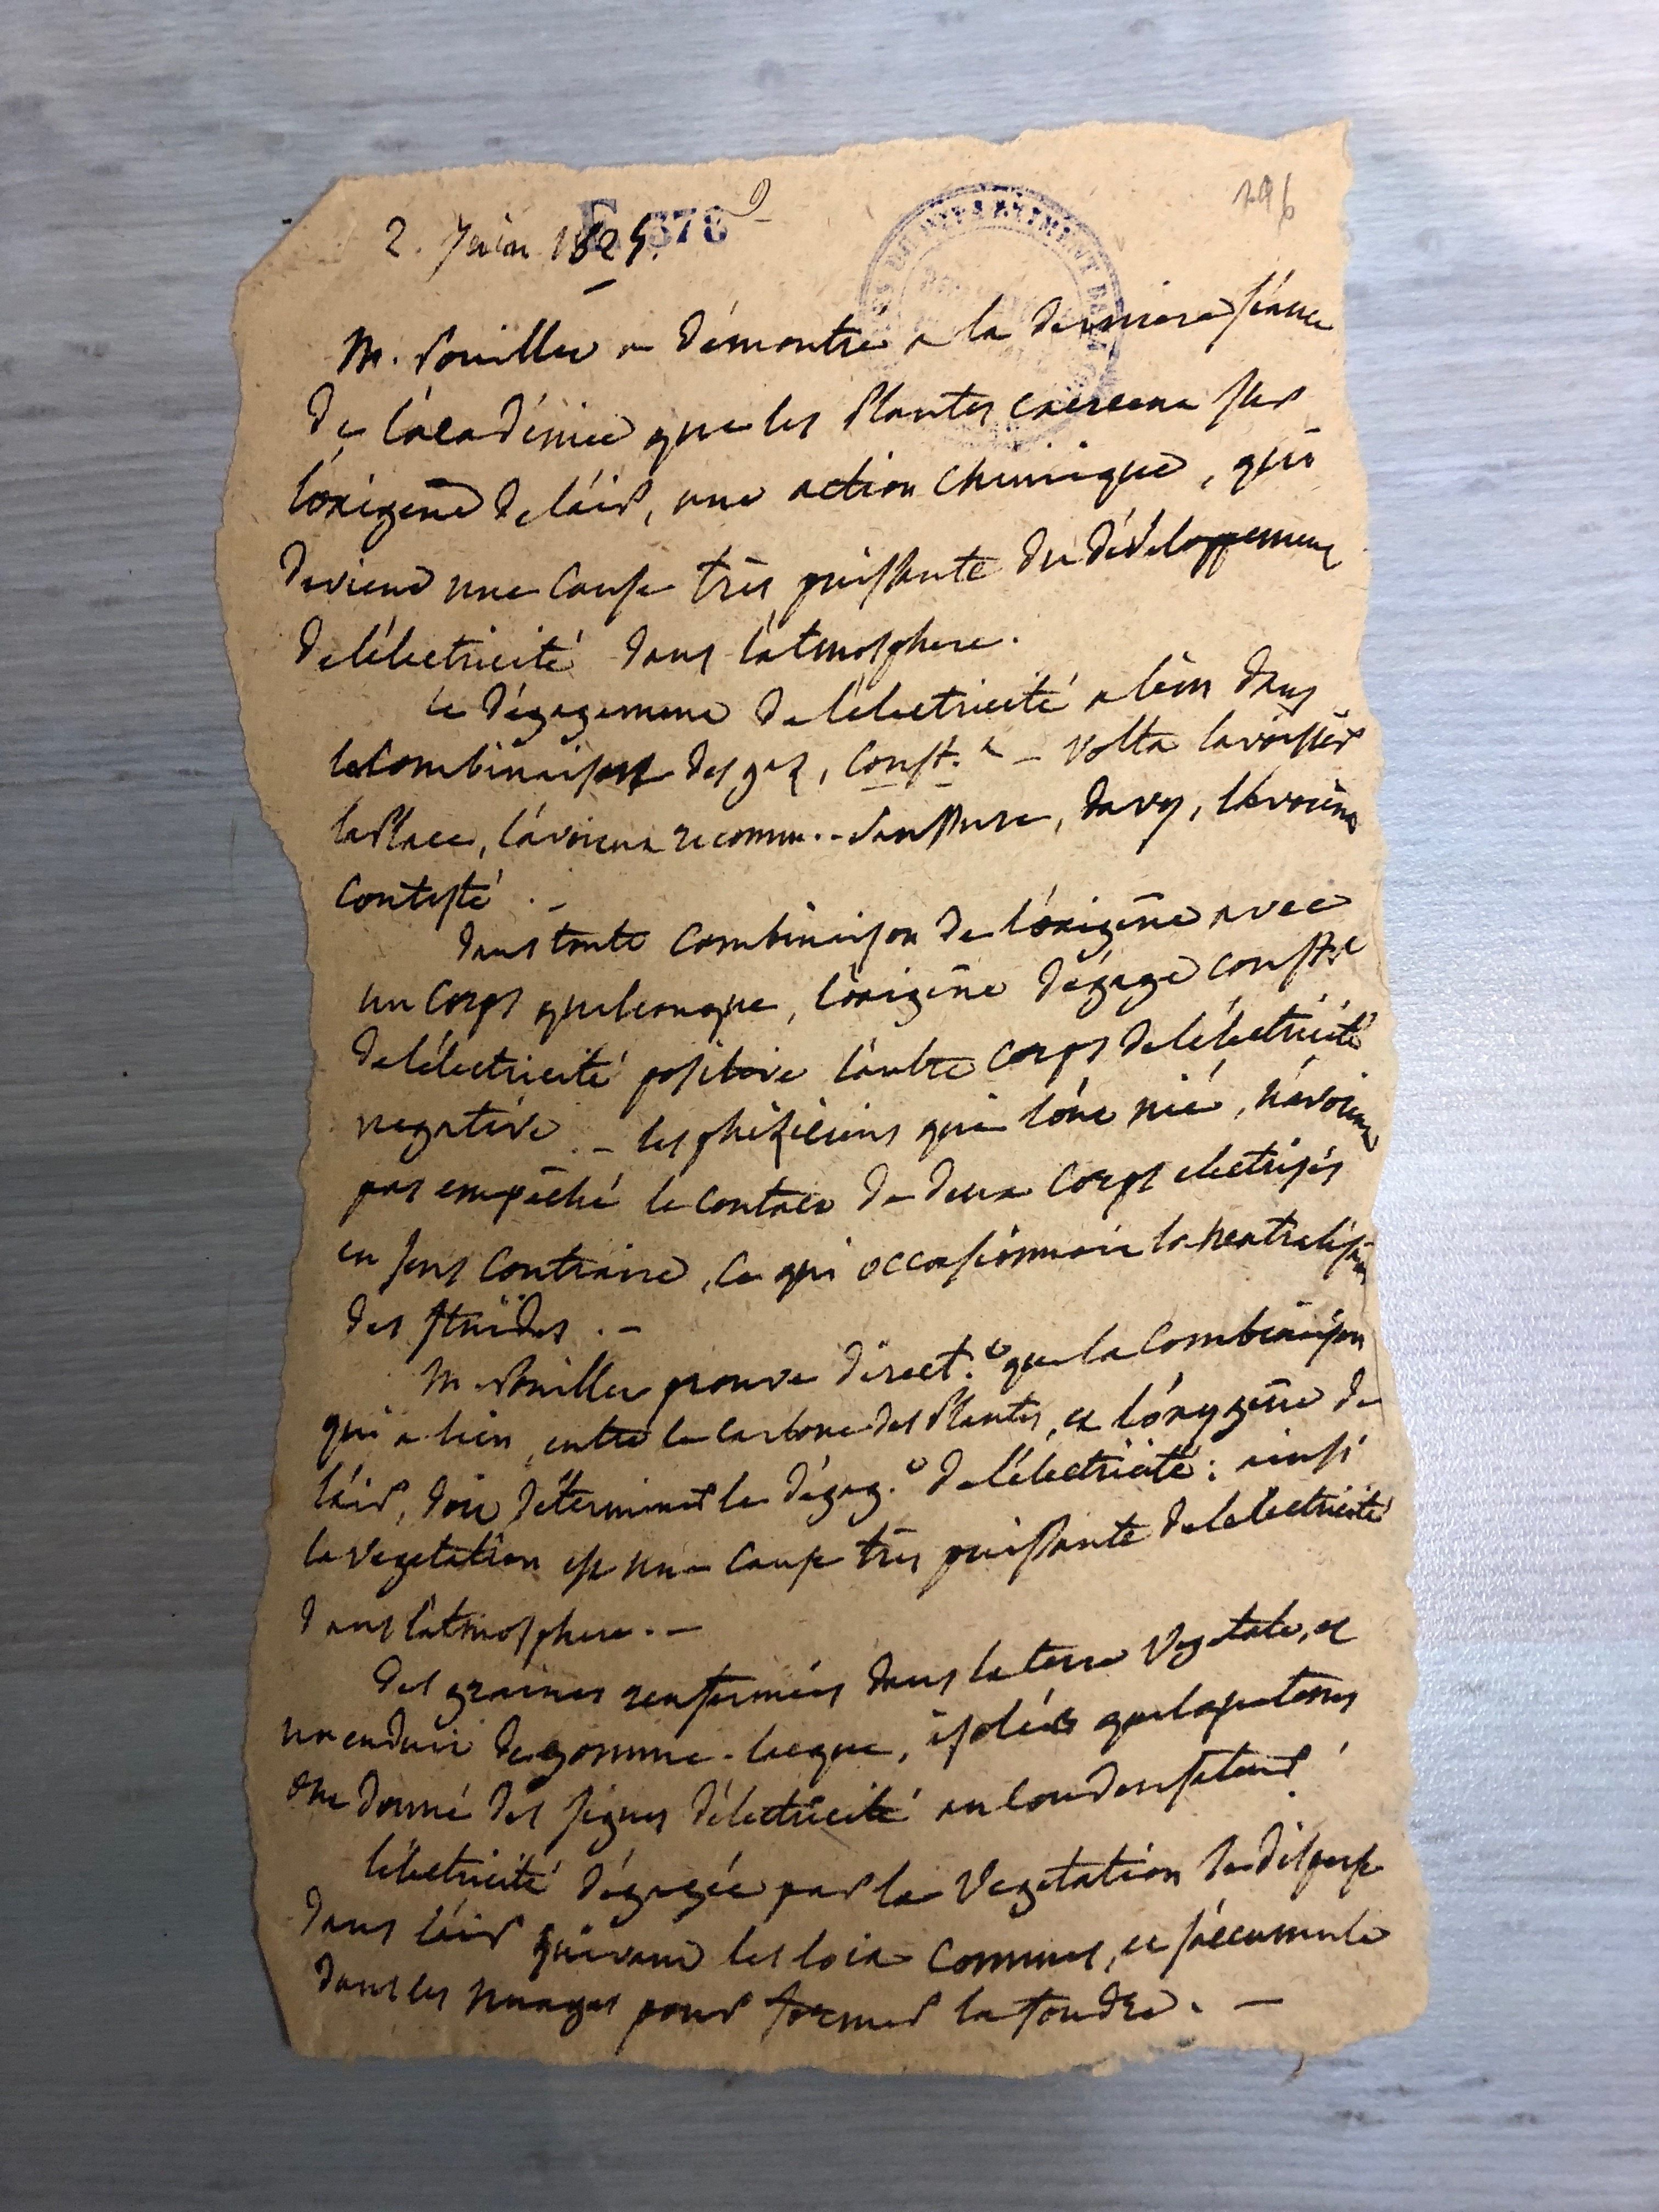 296
E 378
2. Juin 1825.
M. Pouillet a démontré a la derniere séance
De l'académie que les Plantes exercent sur
l'oxigène de l'air, une action chimique, qui
devient une cause très puissante du développement
de l'électricité dans l'atmosphere.
le dégagement de l'électricité a lieu dans
la combinaison des gaz, const.t – Volta lavoisier
laPlace, l'avoient reconnu. – Saussure, Davy, l'avoient
contesté. –
dans toute combinaison de l'oxigène avec
un corps quelconque, l'oxigène dégage constt
de l'électricité positive l'autre corps de l'électricité
negative. – les phisiciens qui l'ont nié, n'avoient
pas empêché le contact de deux corps electrisés
en sens contraire, ce qui occasionnoit la neutralison
des fluides. –
M. Pouillet prouve direct.t que la combinaison
qui a lieu, entre le carbone des Plantes, et l'oxygène de
l'air, doit déterminer le dégag.t de l'électricité: ainsi
la vegetation est une cause très puissante de l'electricité
dans l'atmosphere. –
des graines renfermées dans la terre Vegetale, et
un enduit de gomme-lacque, isolées quelque tems
ont donné des signes d'électricité au condensateur.
l'électricité dégagée par la Vegetation se disperse
dans l'air suivant les loix connues, et s'accumule
dans les nuages pour former la foudre. –